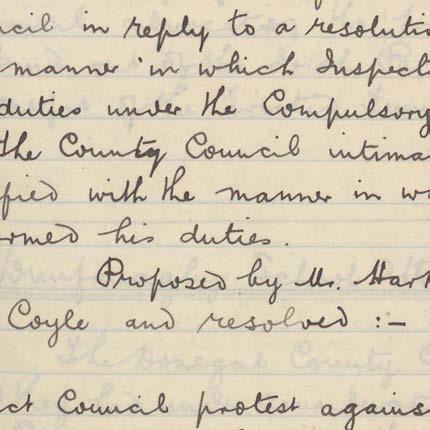 ncil in reply to a resoluti
manner in which Inspect
duties under the Compulsory
The County Council intima
fied with the manner in w
ormed his duties.
Proposed by Mr. Hark
Coyle and resolved :-
ct Council protest agains